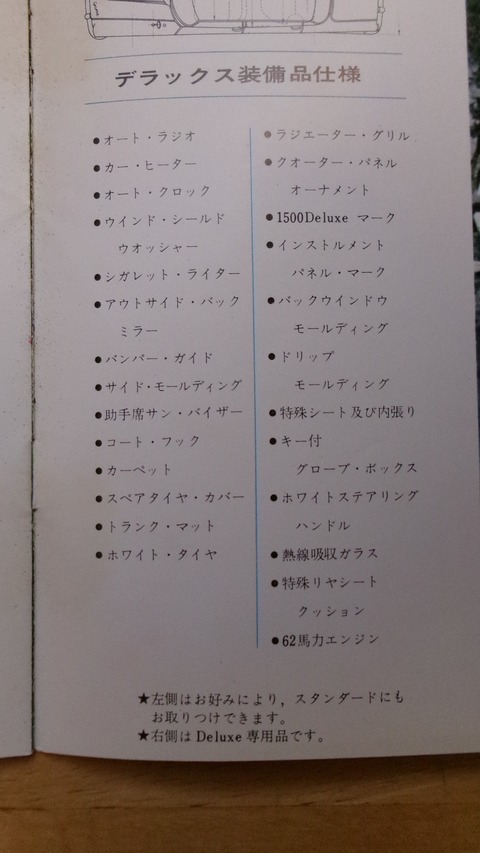 デラックス装備品仕様
●オート・ラジオ
●カー・ヒーター
●オート・クロック
●ウインド・シールド
ウオッシャー
●シガレット・ライター
●アウトサイド・バック
ミラー
●バンパー・ガイド
●サイド・モールディング
●助手席サン・バイザー
●コート・フック
●カーペット
●スペアタイヤ・カバー
●トランク・マット
●ホワイト・タイヤ
●ラジエーター・グリル
●クオーター・パネル
オーナメント
●1500Deluxe マーク
●インストルメント
パネル・マーク
●バックウインドウ
モールディング
●ドリップ
モールディング
●特殊シート及び内張り
●キー付
グローブ・ボックス
●ホワイトステアリング
ハンドル
●熱線吸収ガラス
●特殊リヤシート
クッション
●62馬力エンジン
★左側はお好みにより，スタンダードにも
お取りつけできます。
★右側は Deluxe 専用品です。